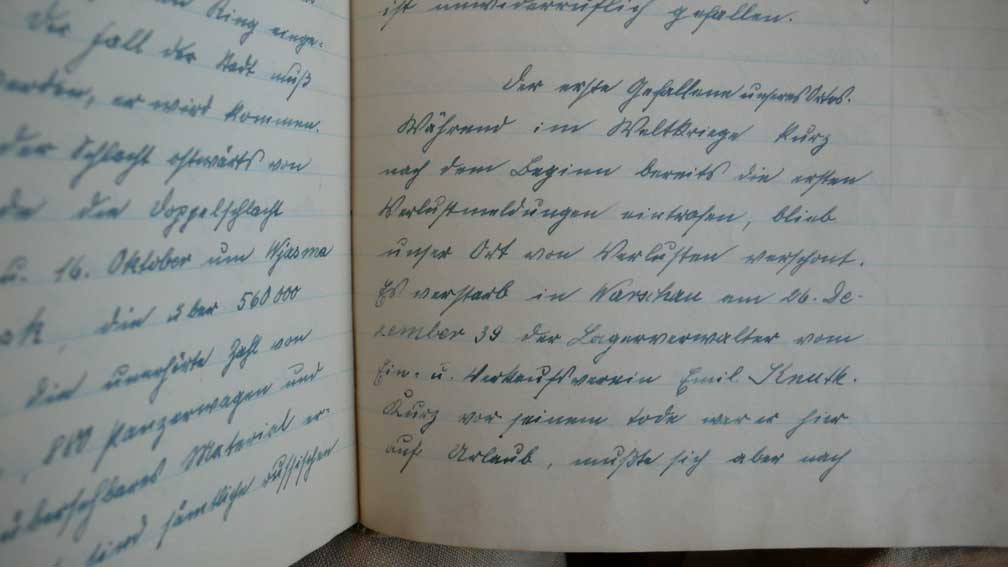 Ring einge-
Der Fall der Stadt muß
werden, er wird kommen.
der Schlacht ostwärts von
die Doppelschlacht
u. 16. Oktober um Wjasma
die über 560 000
die unerhörte Zahl von
880 Panzerwagen und
übersehbares Material er-
sind sämtliche russischen
ist unwiderruflich gefallen.
Der erste Gefallene unseres Ortes.
Während im Weltkriege kurz
nach dem Beginn bereits die ersten
Verlustmeldungen eintrafen, blieb
unser Ort von Verlusten verschont.
Es verstarb in Warschau am 26. De-
zember 39 der Lagerverwalter vom
Ein- u. Verkaufsverein Emil
Kurz vor seinem Tode war er hier
auf Urlaub, mußte sich aber nach